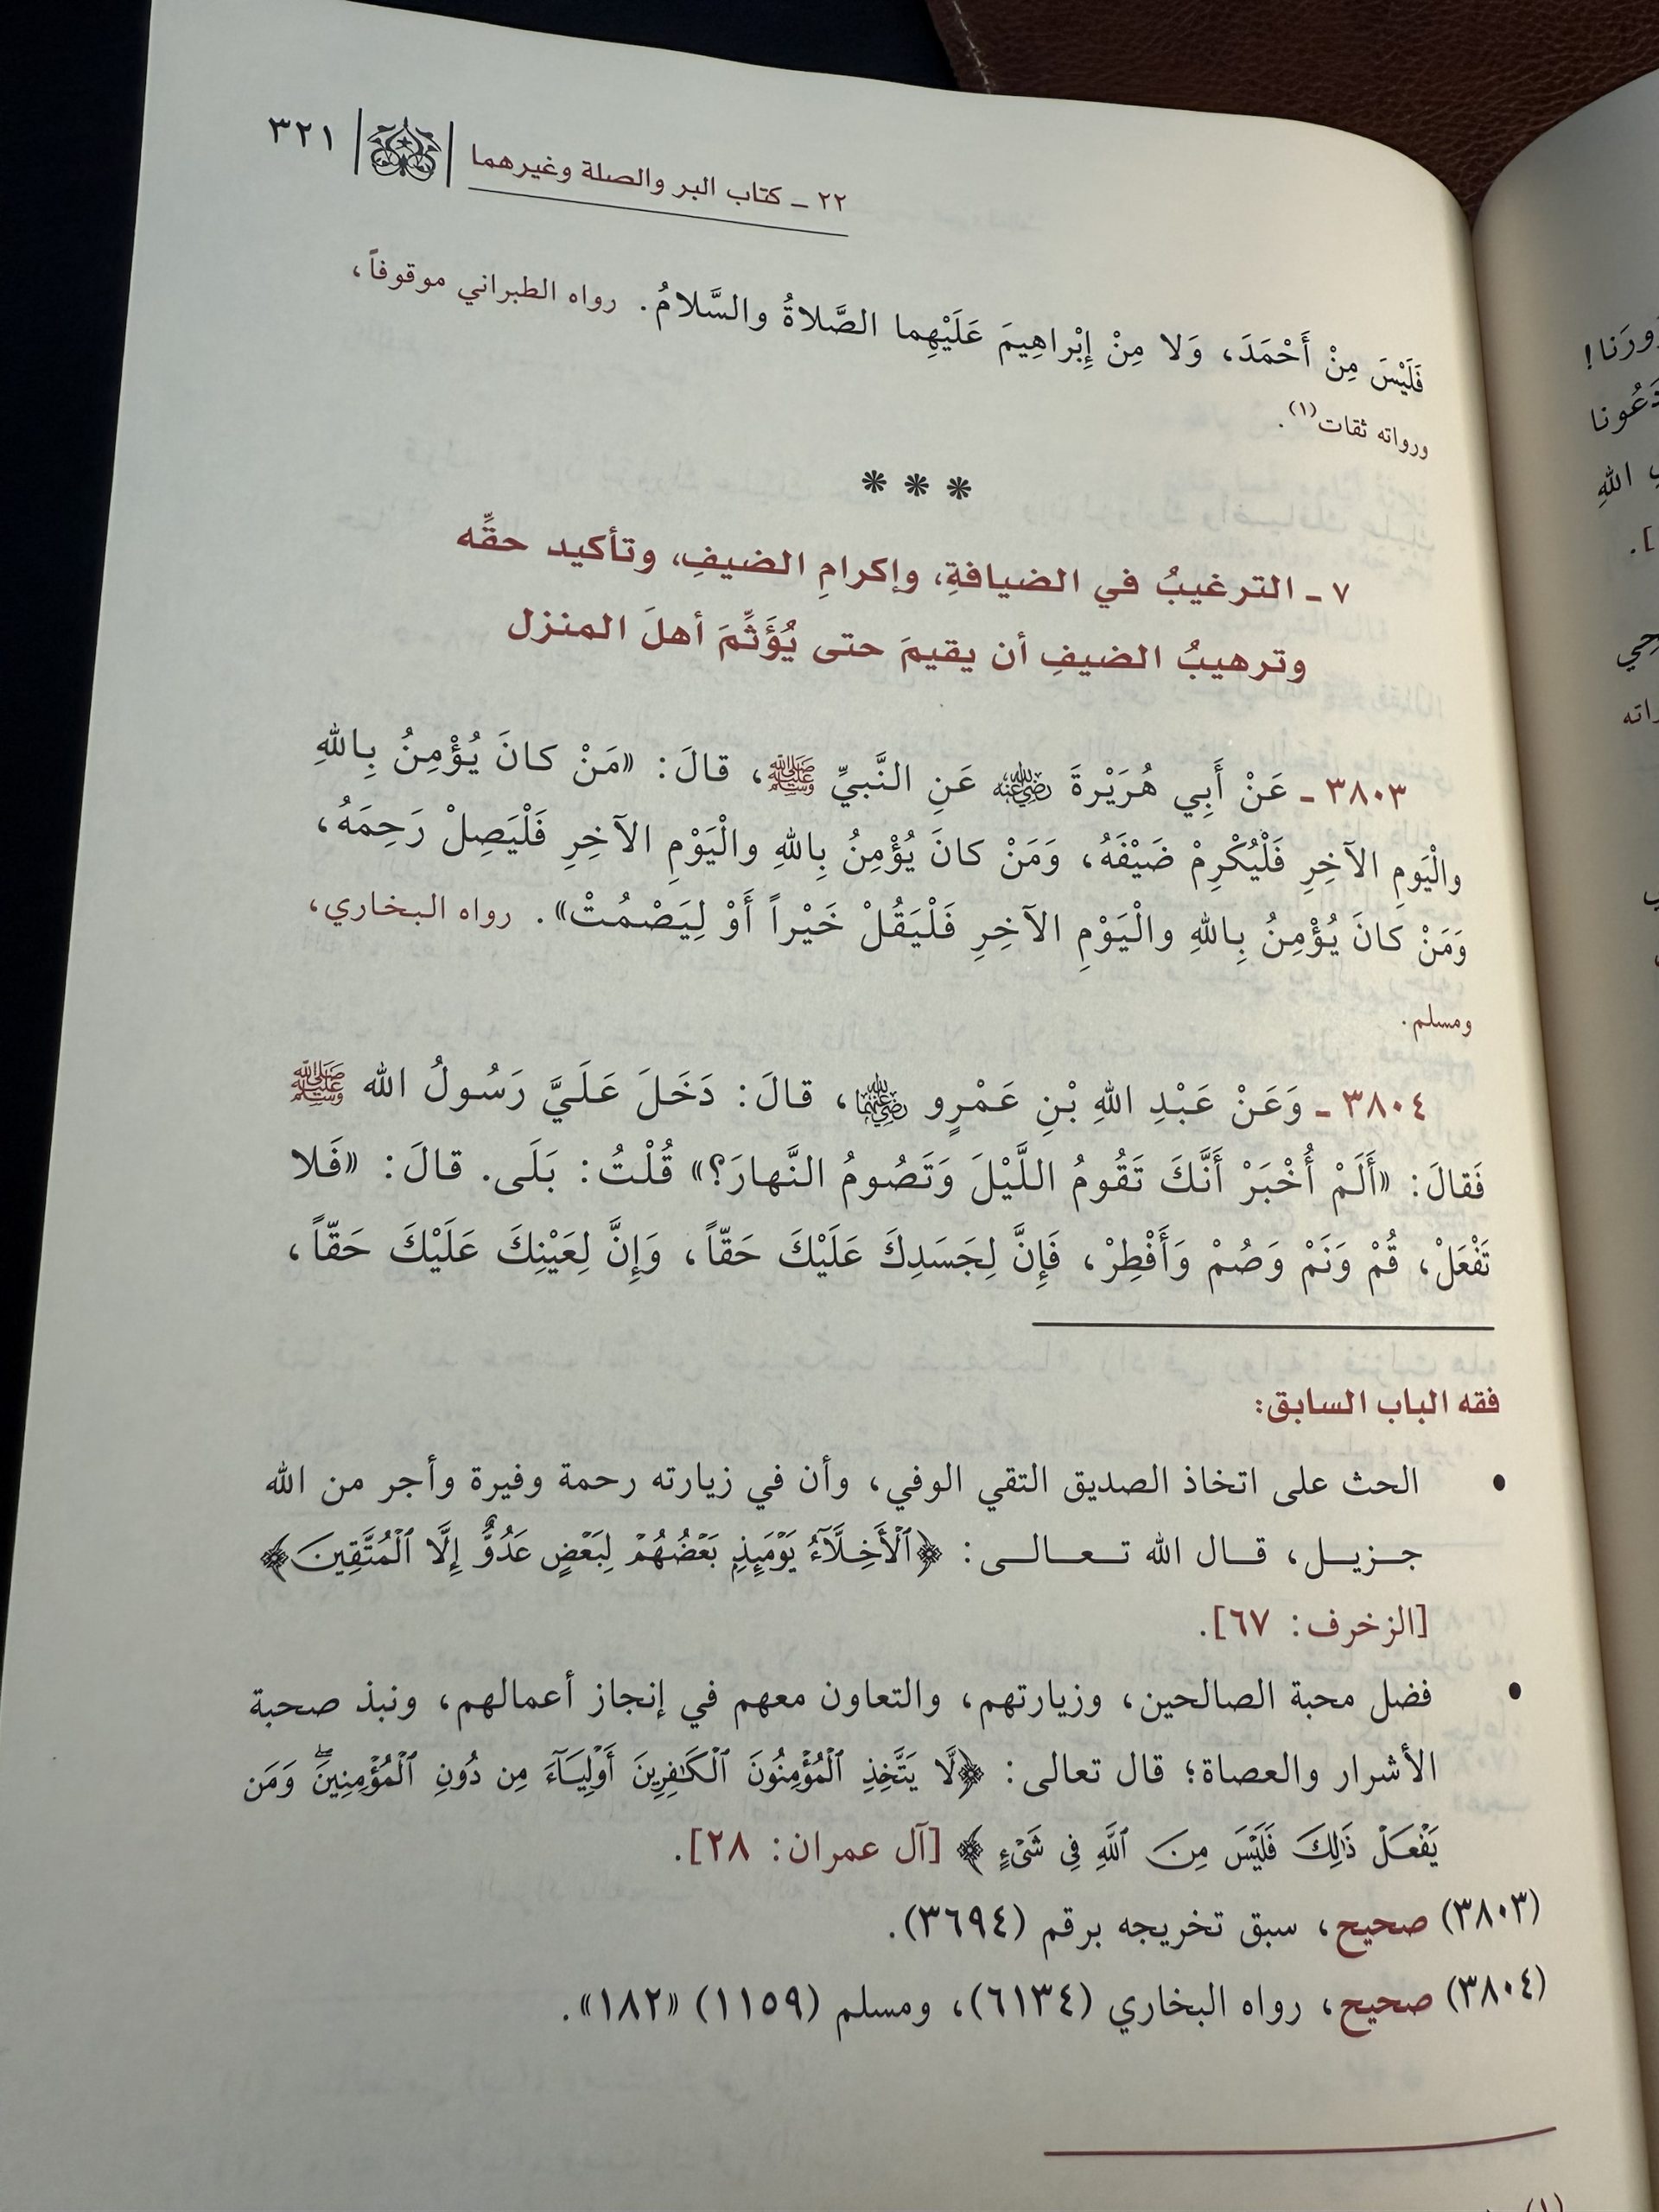 ٢٢ ـ كتاب البر والصلة وغيرهما ٣٢١
فَلَيْسَ مِنْ أَحْمَدَ، وَلا مِنْ إِبْراهِيمَ عَلَيْهِما الصَّلاةُ والسَّلامُ. رواه الطبراني موقوفاً،
ورواته ثقات(١).
* * *
٧ ـ الترغيبُ في الضيافةِ، وإكرامِ الضيفِ، وتأكيد حقِّه
وترهيبُ الضيفِ أن يقيمَ حتى يُؤَثِّمَ أهلَ المنزل
٣٨٠٣ ـ عَنْ أَبِي هُرَيْرةَ رضي الله عنه عَنِ النَّبيِّ ﷺ، قالَ: «مَنْ كانَ يُؤْمِنُ بِاللهِ
والْيَومِ الآخِرِ فَلْيُكْرِمْ ضَيْفَهُ، وَمَنْ كانَ يُؤْمِنُ بِاللهِ والْيَوْمِ الآخِرِ فَلْيَصِلْ رَحِمَهُ،
وَمَنْ كَانَ يُؤْمِنُ بِاللهِ والْيَوْمِ الآخِرِ فَلْيَقُلْ خَيْراً أَوْ لِيَصْمُتْ». رواه البخاري،
ومسلم.
٣٨٠٤ ـ وَعَنْ عَبْدِ اللهِ بْنِ عَمْرٍو رضي الله عنهما، قالَ: دَخَلَ عَلَيَّ رَسُولُ الله ﷺ
فَقالَ: «أَلَمْ أُخْبَرْ أَنَّكَ تَقُومُ اللَّيْلَ وَتَصُومُ النَّهارَ؟» قُلْتُ: بَلَى. قالَ: «فَلا
تَفْعَلْ، قُمْ وَنَمْ وَصُمْ وَأَفْطِرْ، فَإِنَّ لِجَسَدِكَ عَلَيْكَ حَقّاً، وَإِنَّ لِعَيْنِكَ عَلَيْكَ حَقّاً،
فقه الباب السابق:
• الحث على اتخاذ الصديق التقي الوفي، وأن في زيارته رحمة وفيرة وأجر من الله
جـزيـل، قـال الله تـعـالـى: ﴿ٱلْأَخِلَّآءُ يَوْمَئِذٍۭ بَعْضُهُمْ لِبَعْضٍ عَدُوٌّ إِلَّا ٱلْمُتَّقِينَ﴾
[الزخرف: ٦٧].
• فضل محبة الصالحين، وزيارتهم، والتعاون معهم في إنجاز أعمالهم، ونبذ صحبة
الأشرار والعصاة؛ قال تعالى: ﴿لَّا يَتَّخِذِ ٱلْمُؤْمِنُونَ ٱلْكَٰفِرِينَ أَوْلِيَآءَ مِن دُونِ ٱلْمُؤْمِنِينَۖ وَمَن
يَفْعَلْ ذَٰلِكَ فَلَيْسَ مِنَ ٱللَّهِ فِى شَىْءٍ ﴾ [آل عمران: ٢٨].
(٣٨٠٣) صحيح، سبق تخريجه برقم (٣٦٩٤).
(٣٨٠٤) صحيح، رواه البخاري (٦١٣٤)، ومسلم (١١٥٩) «١٨٢».